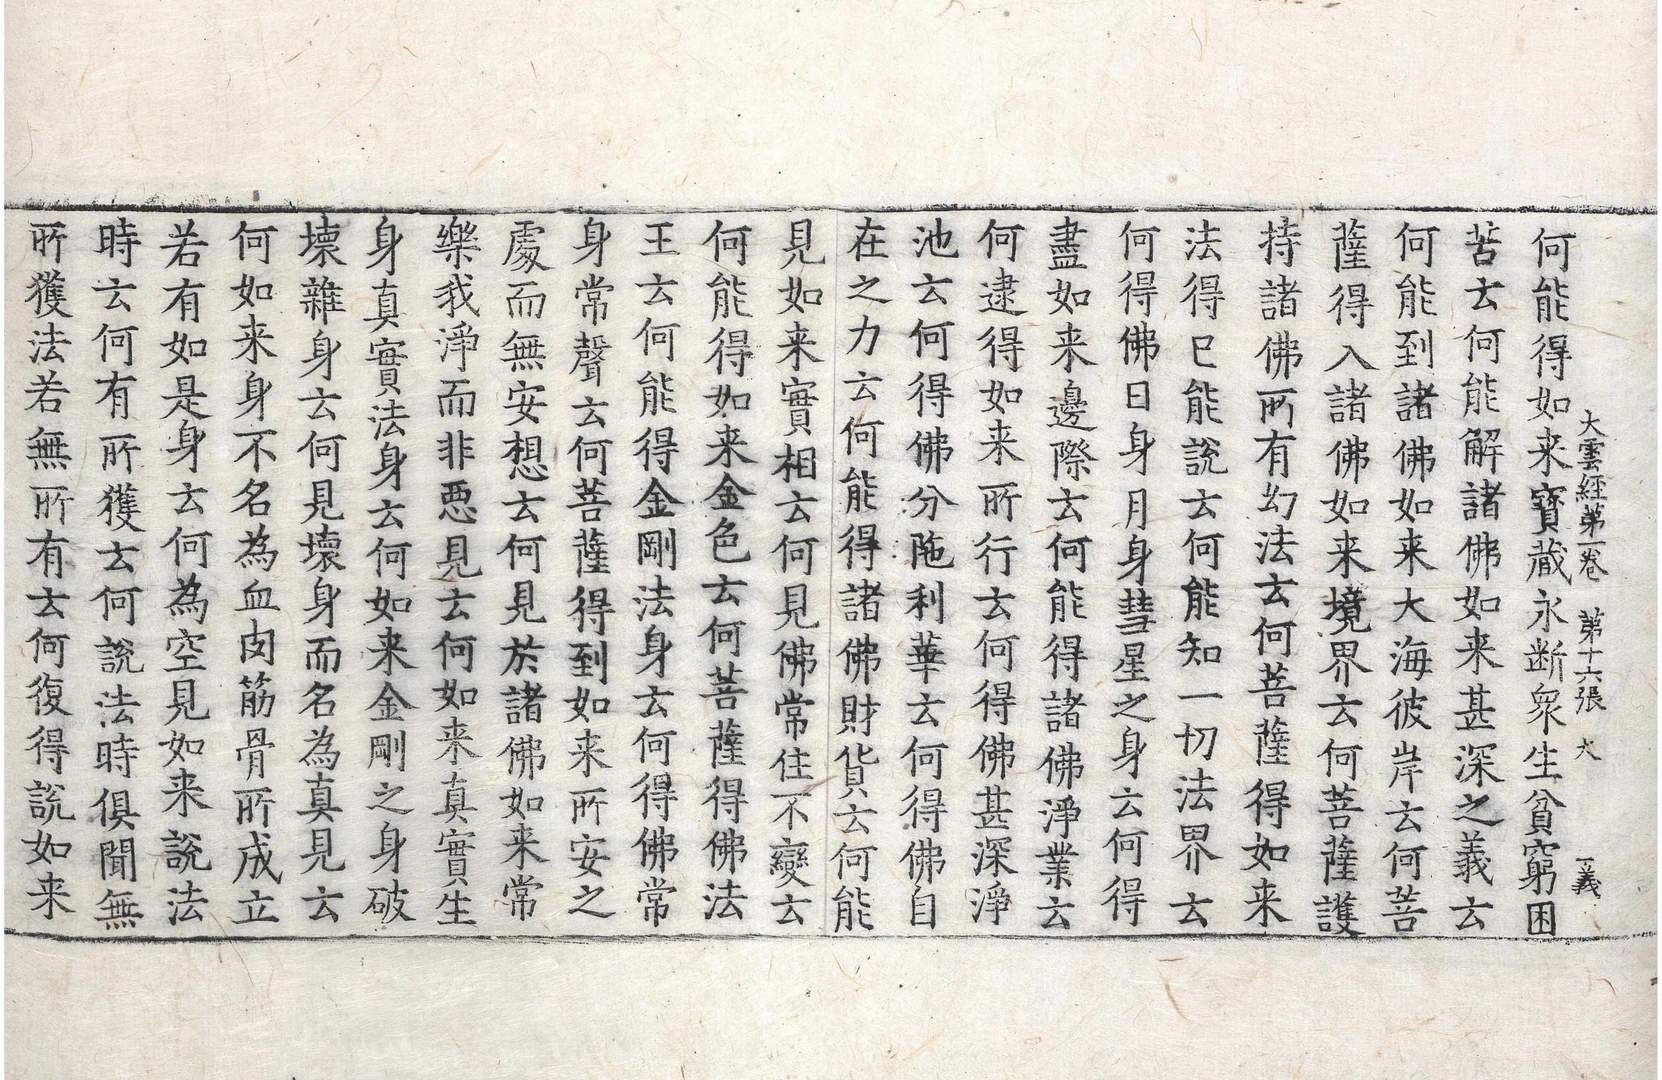 大雲經第一卷 第十六張 大 一義
何能得如来寶蔵永断衆生貧窮困
苦云何能解諸佛如来甚深之義云
何能到諸佛如来大海彼岸云何菩
薩得入諸佛如来境界云何菩薩護
持諸佛所有幻法云何菩薩得如来
法得已能說云何能知一切法界云
何得佛日身月身彗星之身云何得
盡如来邊際云何能得諸佛淨業云
何逮得如来所行云何得佛甚深淨
池云何得佛分陁利華云何得佛自
在之力云何能得諸佛財貨云何能
見如来實相云何見佛常住不變云
何能得如来金色云何菩薩得佛法
王云何能得金剛法身云何得佛常
身常聲云何菩薩得到如来所安之
處而無安想云何見於諸佛如来常
樂我淨而非惡見云何如来真實生
身真實法身云何如来金剛之身破
壞雜身云何見壞身而名為真見云
何如来身不名為血肉筋骨所成立
若有如是身云何為空見如来說法
時云何有所獲云何說法時俱聞無
所獲法若無所有云何復得說如来